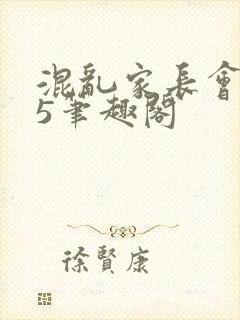 混亂家長會
5筆趣閣
徐賢康